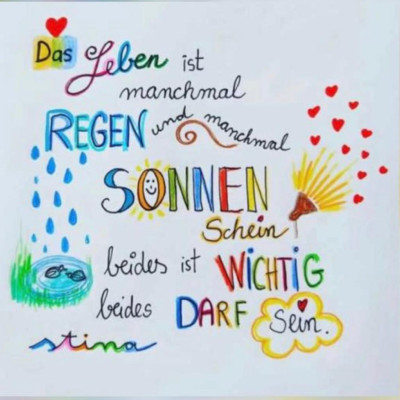 Das Leben ist
manchmal
REGEN und manchmal
SONNEN
Schein
beides ist WICHTIG
beides DARF Sein.
stina